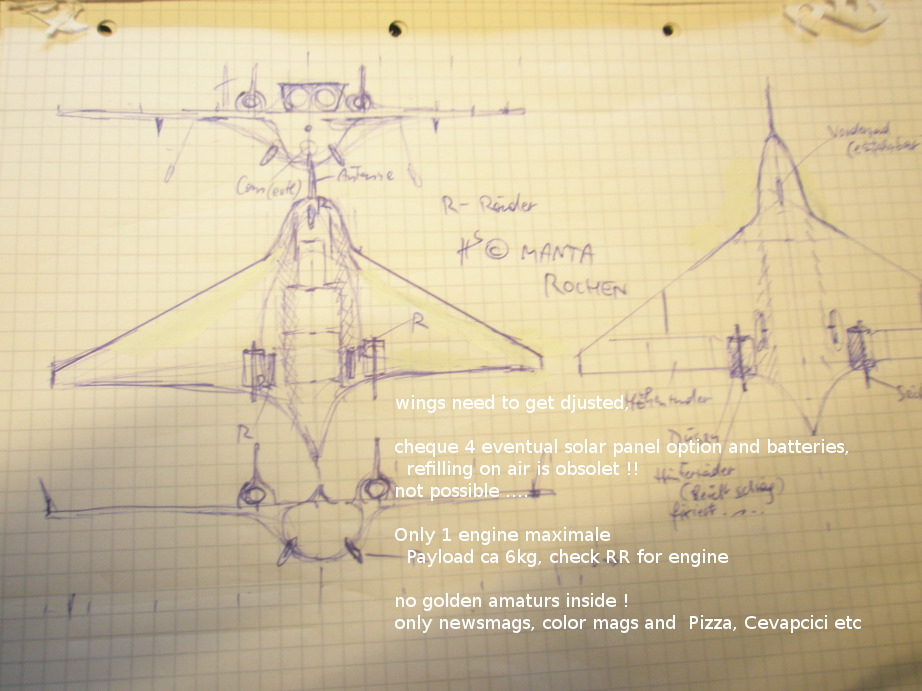 Cam
Antenne
R - Räder
HS © MANTA
ROCHEN
R
R
R
R
Vorderrad
Höhenruder
Düsen
Hinterräder
(leicht schräg)
fixiert.....
wings need to get djusted,
cheque 4 eventual solar panel option and batteries,
refilling on air is obsolet !!
not possible ....
Only 1 engine maximale
Payload ca 6kg, check RR for engine
no golden amaturs inside !
only newsmags, color mags and Pizza, Cevapcici etc